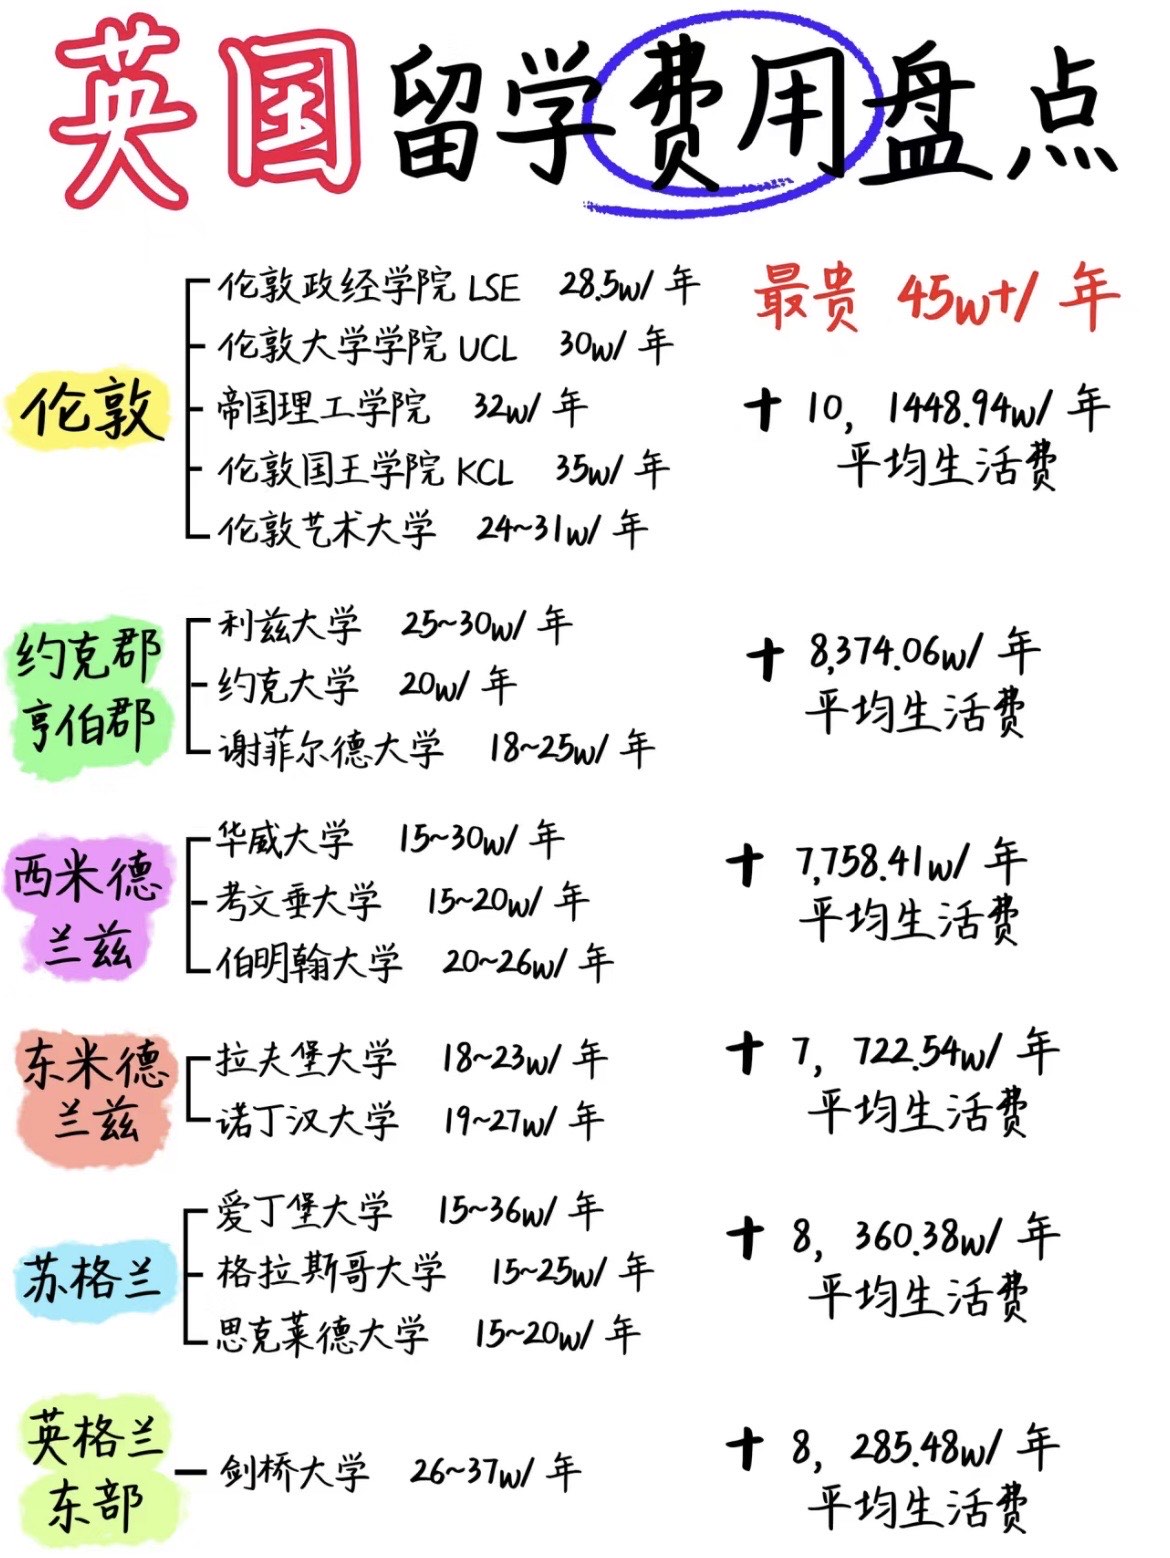 英国留学费用盘点
伦敦
伦敦政经学院 LSE 28.5w/年
伦敦大学学院 UCL 30w/年
帝国理工学院 32w/年
伦敦国王学院 KCL 35w/年
伦敦艺术大学 24~31w/年
最贵 45w+/年
+ 10, 1448.94w/年
平均生活费
约克郡
亨伯郡
利兹大学 25~30w/年
约克大学 20w/年
谢菲尔德大学 18~25w/年
+ 8,374.06w/年
平均生活费
西米德
兰兹
华威大学 15~30w/年
考文垂大学 15~20w/年
伯明翰大学 20~26w/年
+ 7,758.41w/年
平均生活费
东米德
兰兹
拉夫堡大学 18~23w/年
诺丁汉大学 19~27w/年
+ 7, 722.54w/年
平均生活费
苏格兰
爱丁堡大学 15~36w/年
格拉斯哥大学 15~25w/年
思克莱德大学 15~20w/年
+ 8, 360.38w/年
平均生活费
英格兰
东部
剑桥大学 26~37w/年
+ 8, 285.48w/年
平均生活费